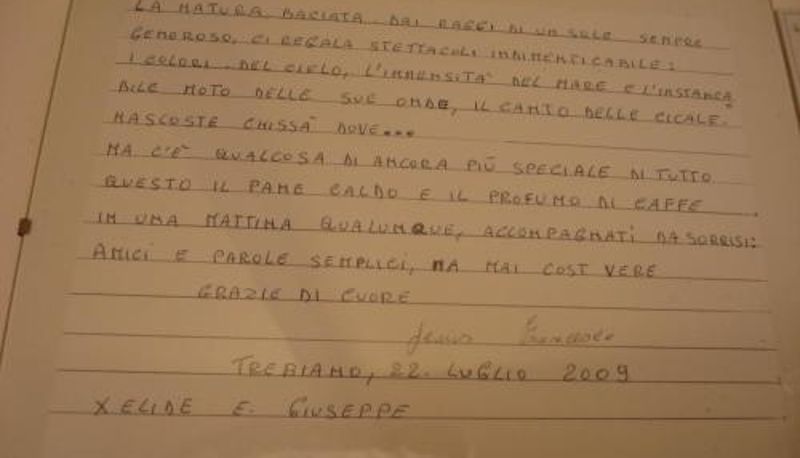 LA NATURA BACIATA DAI RAGGI DI UN SOLE SEMPRE
GENEROSO, CI REGALA STETTACOLI INDIMENTICABILE:
I COLORI DEL CIELO, L'IMMENSITA' DEL MARE E L'INSTANCA
BILE MOTO DELLE SUE ONDE, IL CANTO DELLE CICALE.
NASCOSTE CHISSA' DOVE...
MA C'E' QUALCOSA DI ANCORA PIÙ SPECIALE DI TUTTO
QUESTO IL PANE CALDO E IL PROFUMO DI CAFFE
IN UNA MATTINA QUALUNQUE, ACCOMPAGNATI DA SORRISI:
AMICI E PAROLE SEMPLICI, MA MAI COSI VERE
GRAZIE DI CUORE
TREBIANO, 22. LUGLIO 2009
X ELIDE E. GIUSEPPE